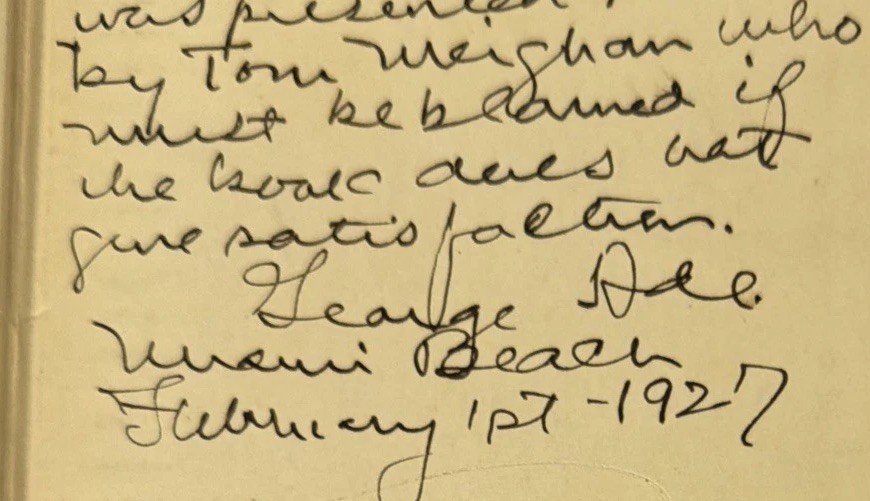 was presented
by Tom Meighan who
must be blamed if
the book does not
give satisfaction.
George Ade.
Miami Beach
February 1st - 1927